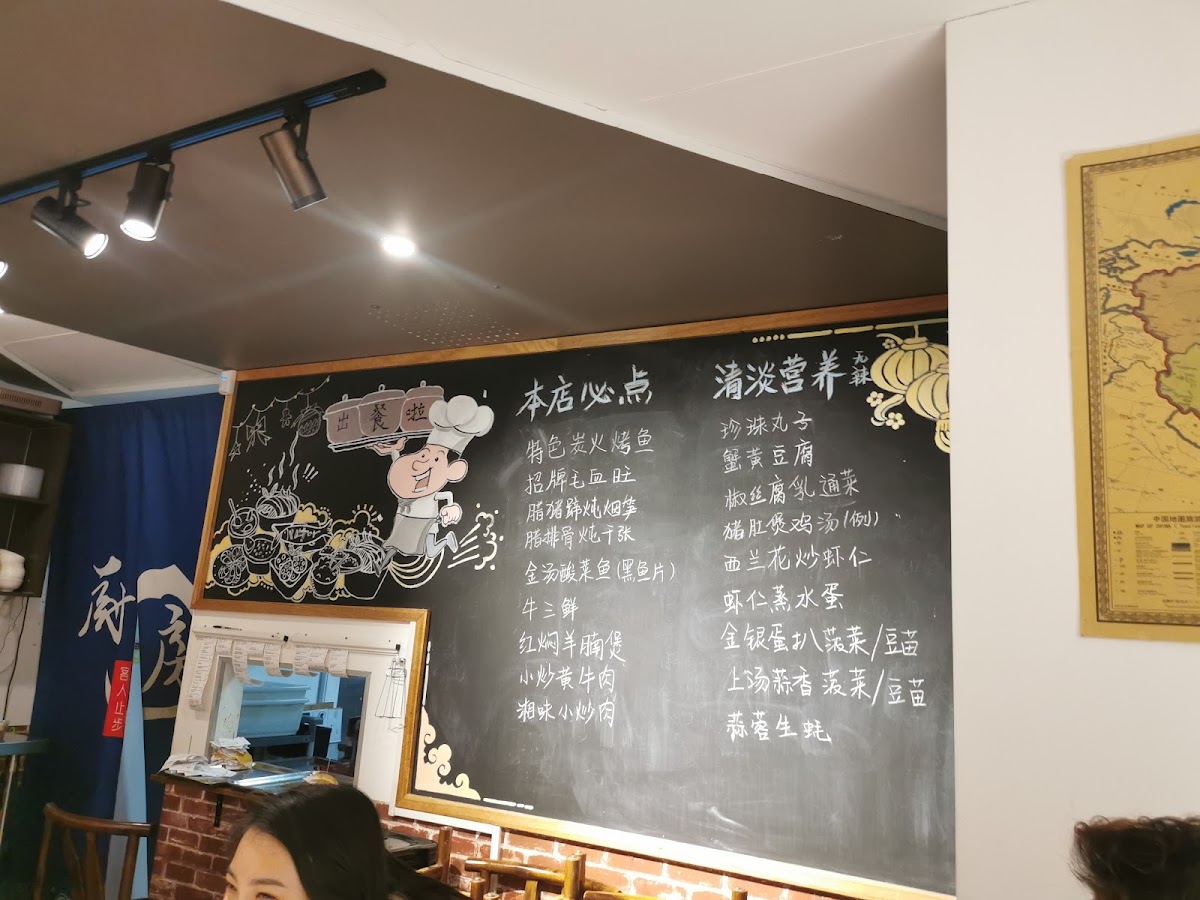 出餐啦
本店必点
特色炭火烤鱼
招牌毛血旺
腊猪蹄炖烟笋
腊排骨炖干张
金汤酸菜鱼(黑鱼片)
牛三鲜
红焖羊腩煲
小炒黄牛肉
湘味小炒肉
清淡营养 无辣
珍珠丸子
蟹黄豆腐
椒丝腐乳通菜
猪肚煲鸡汤(例)
西兰花炒虾仁
虾仁蒸水蛋
金银蛋扒菠菜/豆苗
上汤蒜香菠菜/豆苗
蒜蓉生蚝
厨房
客人止步